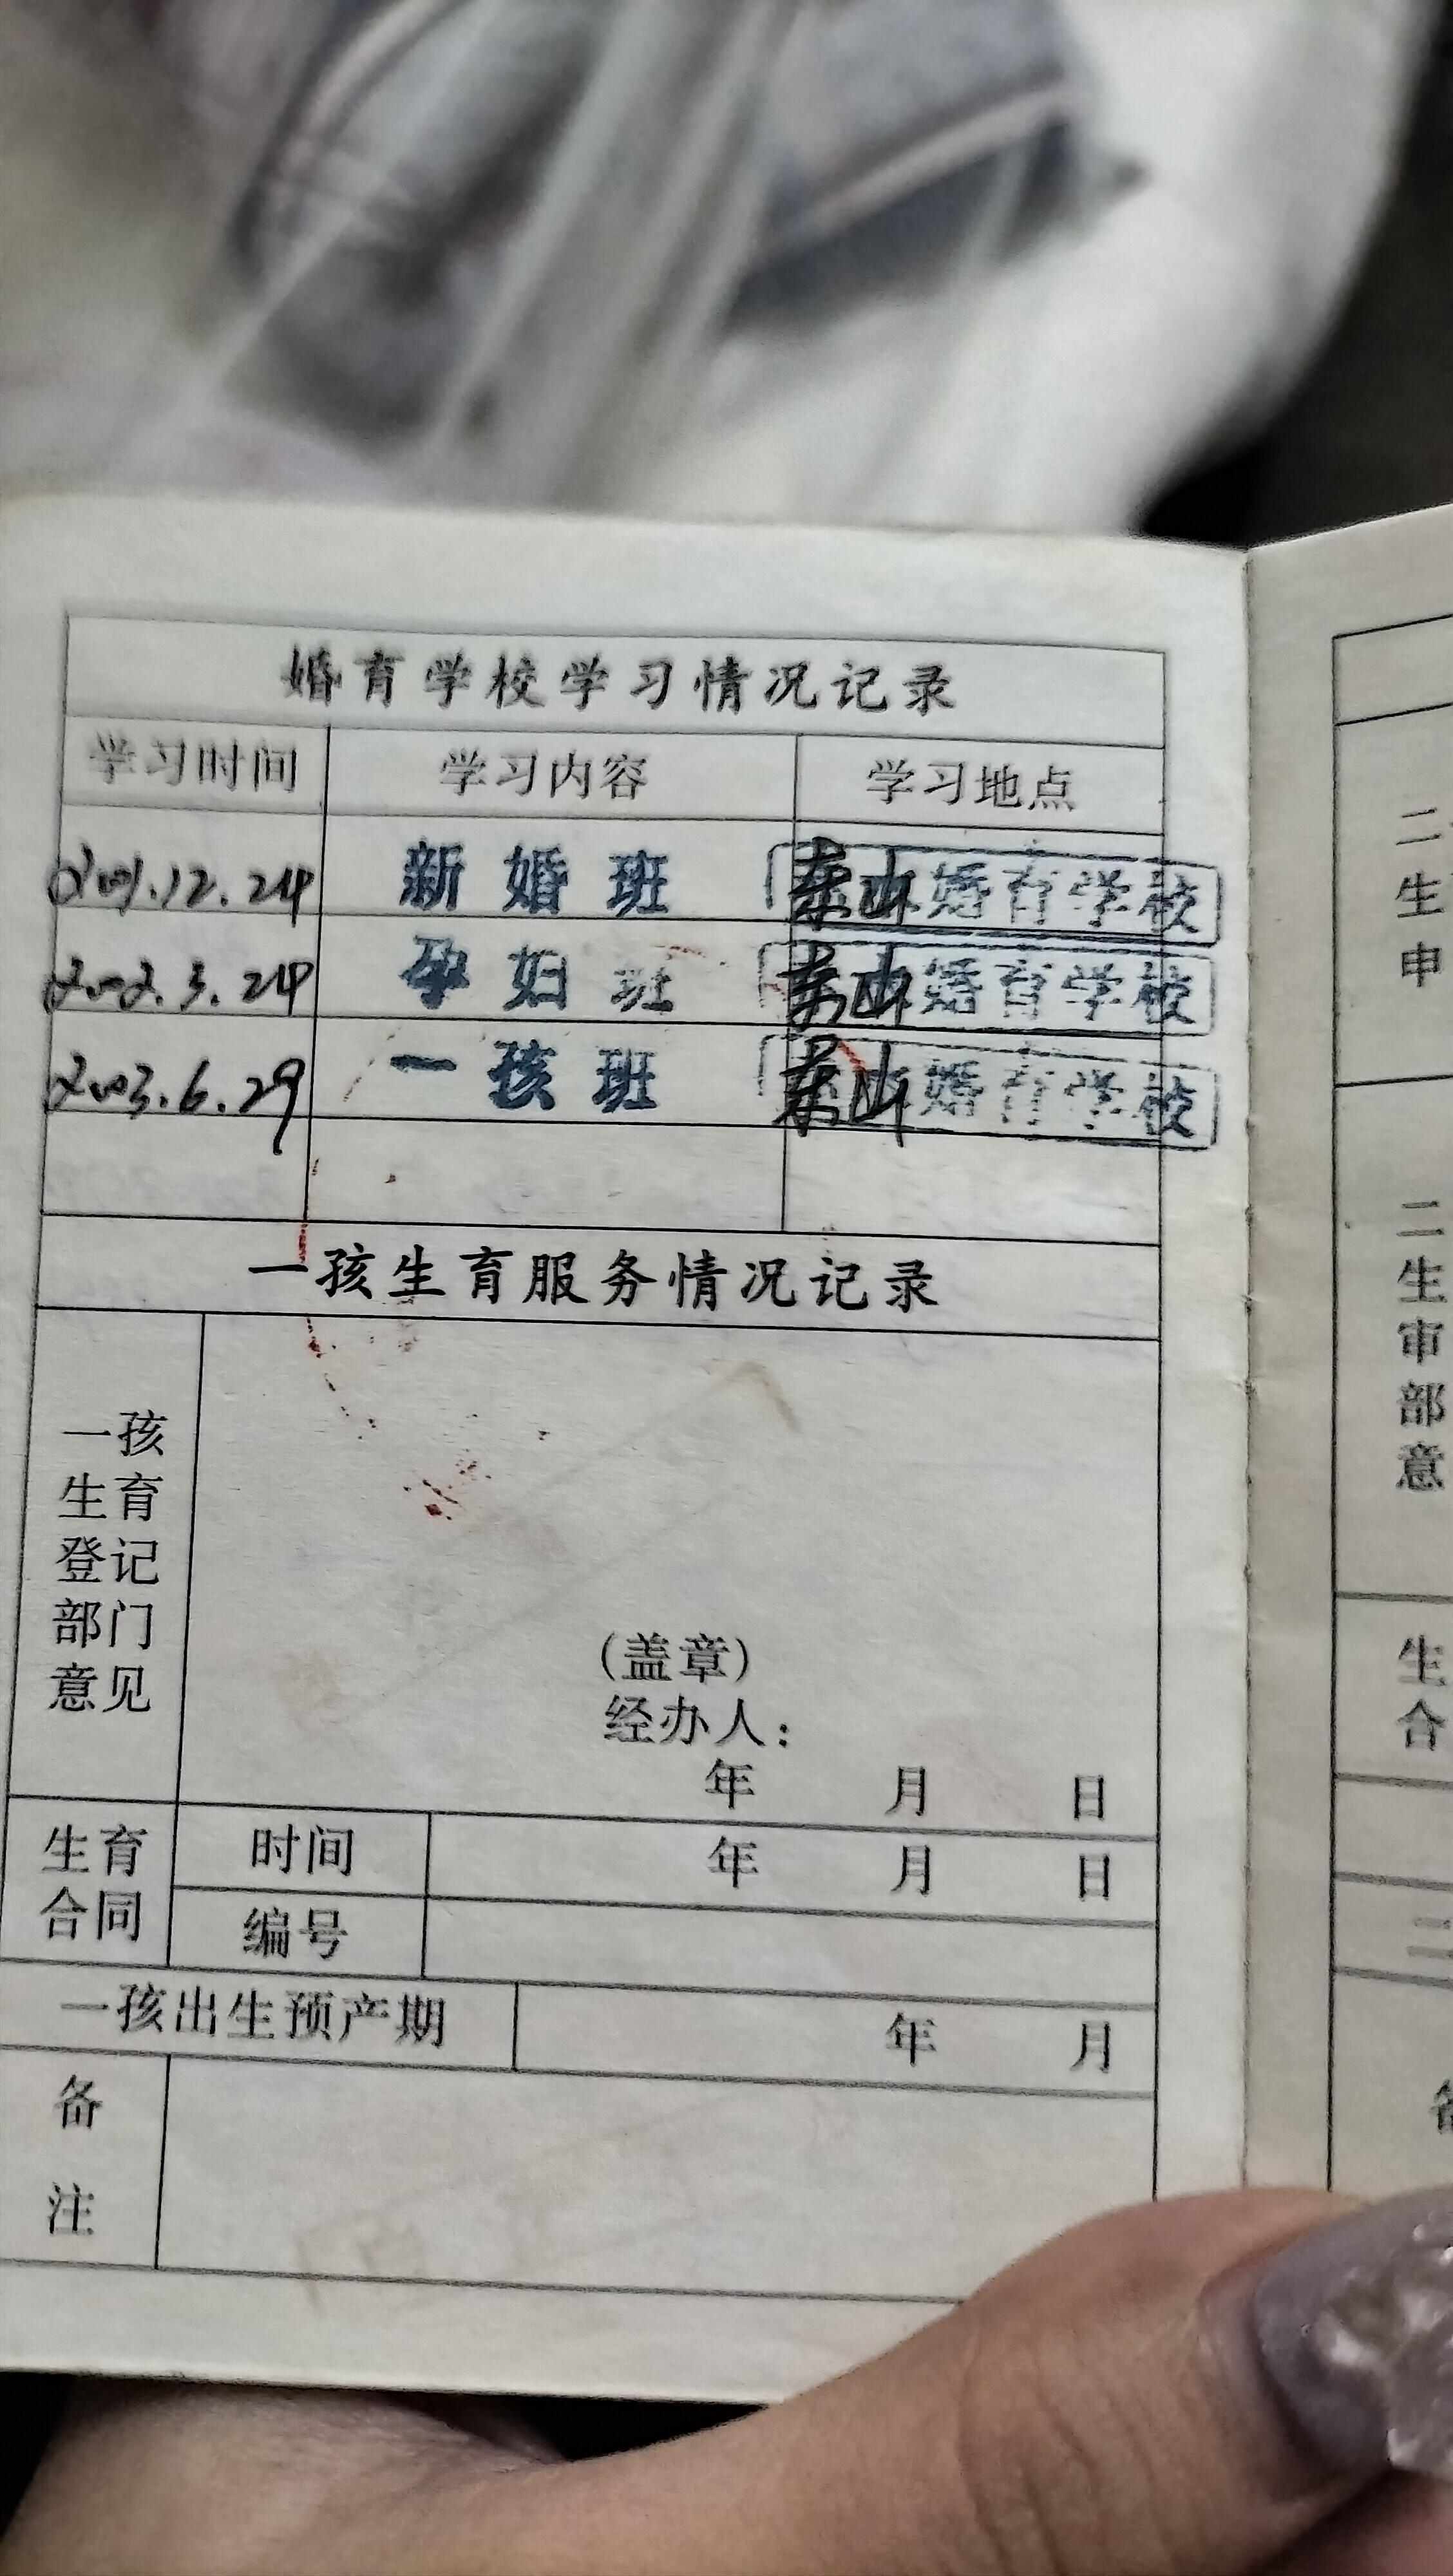 婚育学校学习情况记录
学习时间 学习内容 学习地点
2001.12.24 新婚班 东山婚育学校
2002.3.24 孕妇班 东山婚育学校
2003.6.29 一孩班 东山婚育学校
一孩生育服务情况记录
一孩
生育
登记
部门
意见
(盖章)
经办人:
年 月 日
生育
合同
时间 年 月 日
编号
一孩出生预产期 年 月
备
注
二
生
申
二
生
审
部
意
生
合